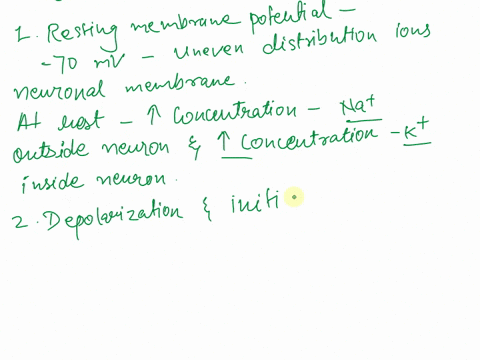 1. Resting membrane potential –
-70 mV – uneven distribution ions
neuronal membrane.
At rest – ↑ Concentration – Na⁺
outside neuron & ↑ Concentration – K⁺
inside neuron.
2. Depolarization & initi